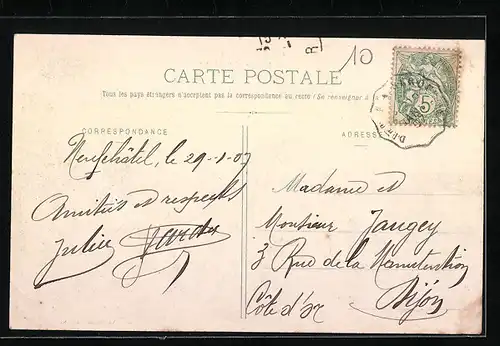 10
CARTE POSTALE
Tous les pays étrangers n'acceptent pas la correspondance au recto (Se renseigner à la
CORRESPONDANCE
ADRESSE
Neufchâtel, le 29-1-07
Amitiés et respects
Julien
Madame et
Monsieur Jaugey
3 Rue de la Manutention
Dijon
Côte d'Or
5